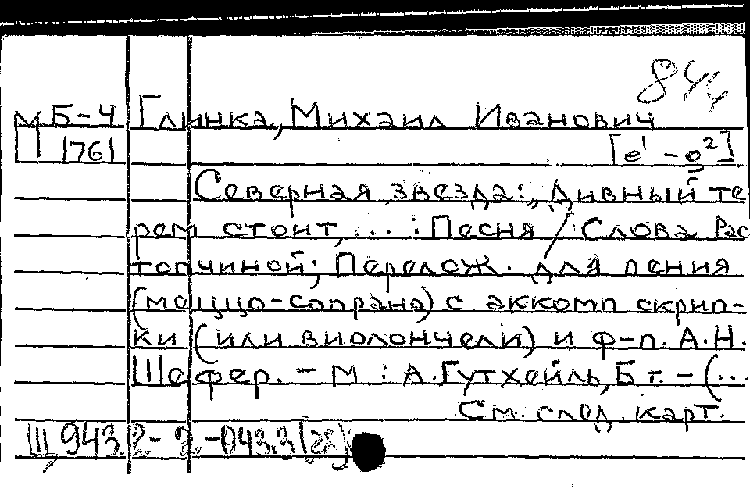 84
м Б-4 Глинка, Михаил Иванович
1761 [e¹ - g²]
Северная звезда: „Дивный те
рем стоит, ... : Песня / Слова Рас
топчиной; Перелож. для пения
(меццо-сопрано) с аккомп скрип-
ки (или виолончели) и ф-п. А.Н.
Шефер. - М : А.Гутхейль, Б г. - (...
См. след. карт.
Щ 943.2-2-043.3(28)